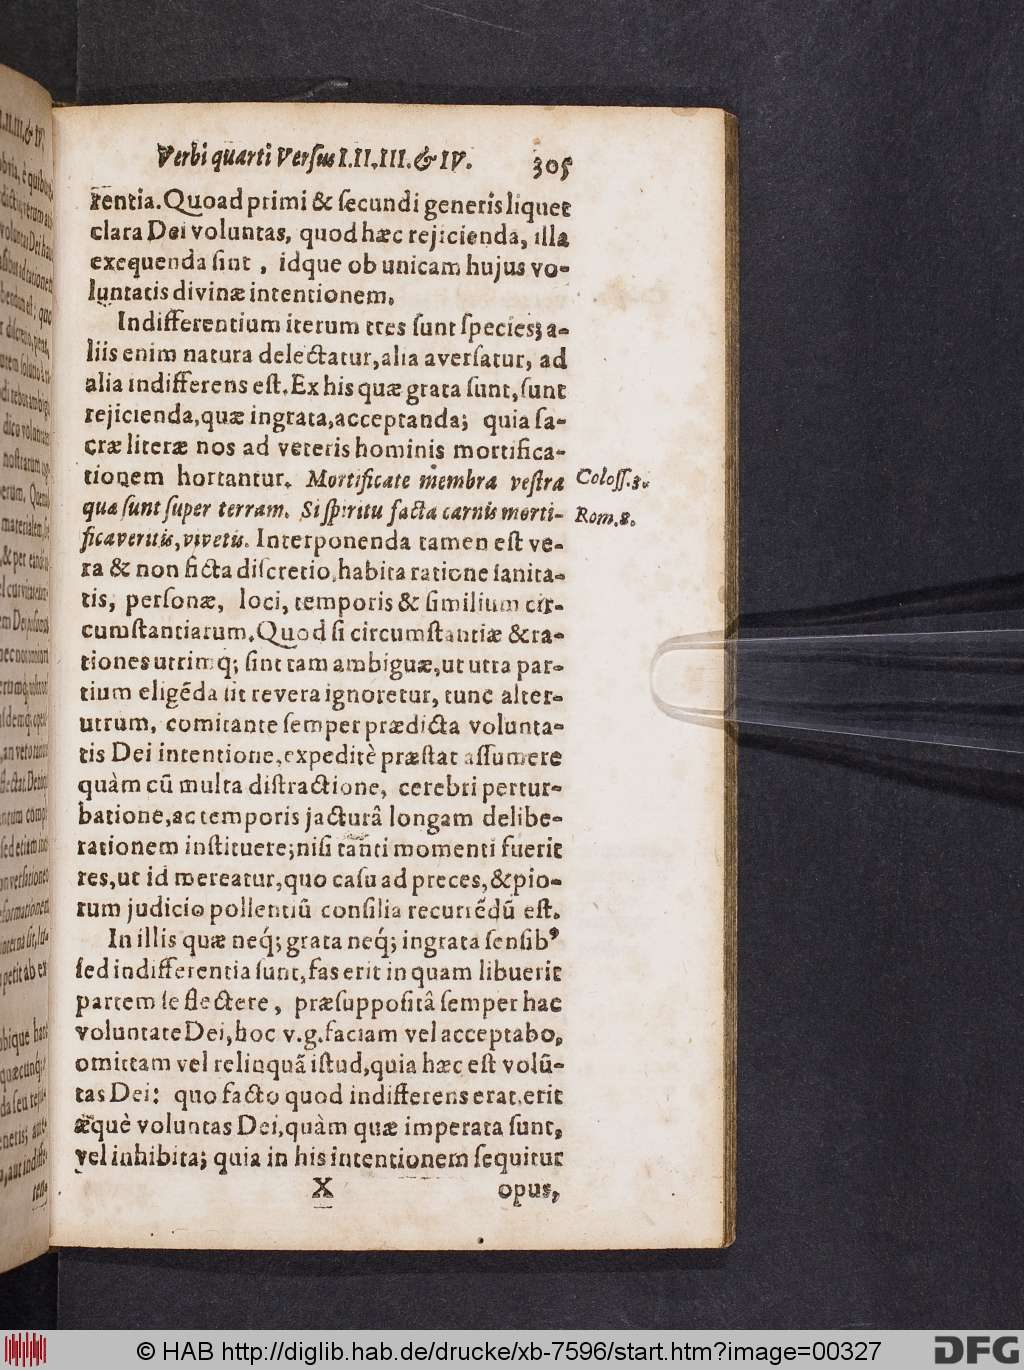 Verbi quarti Versus I.II.III.& IV. 305
rentia. Quoad primi & ſecundi generis liquet
clara Dei voluntas, quod hæc rejicienda, illa
exequenda ſint, idque ob unicam hujus vo-
luntatis divinæ intentionem.
Indifferentium iterum tres ſunt ſpecies; a-
liis enim natura delectatur, alia averſatur, ad
alia indifferens eſt. Ex his quæ grata ſunt, ſunt
rejicienda, quæ ingrata, acceptanda; quia ſa-
cræ literæ nos ad veteris hominis mortifica-
tionem hortantur. Mortificate membra veſtra
Coloſſ.3.
qua ſunt ſuper terram. Si ſpiritu facta carnis morti-
Rom.8.
ficaveritis, vivetis. Interponenda tamen eſt ve-
ra & non ficta diſcretio, habita ratione ſanita-
tis, perſonæ, loci, temporis & ſimilium cir-
cumſtantiarum. Quod ſi circumſtantiæ & ra-
tiones utrimq; ſint tam ambiguæ, ut utra par-
tium eligẽda ſit revera ignoretur, tunc alter-
utrum, comitante ſemper prædicta volunta-
tis Dei intentione, expeditè præſtat aſſumere
quàm cũ multa diſtractione, cerebri pertur-
batione, ac temporis jacturâ longam delibe-
rationem inſtituere; niſi tanti momenti fuerit
res, ut id mereatur, quo caſu ad preces, & pio-
rum judicio pollentiũ conſilia recurrẽdũ eſt.
In illis quæ neq́; grata neq́; ingrata ſenſibꝰ
ſed indifferentia ſunt, fas erit in quam libuerit
partem ſe flectere, præſuppoſitâ ſemper hac
voluntate Dei, hoc v.g. faciam vel acceptabo,
omittam vel relinquã iſtud, quia hæc eſt volũ-
tas Dei: quo facto quod indifferens erat, erit
æquè voluntas Dei, quàm quæ imperata ſunt,
vel inhibita; quia in his intentionem ſequitur
X opus,
© HAB http://diglib.hab.de/drucke/xb-7596/start.htm?image=00327
DFG